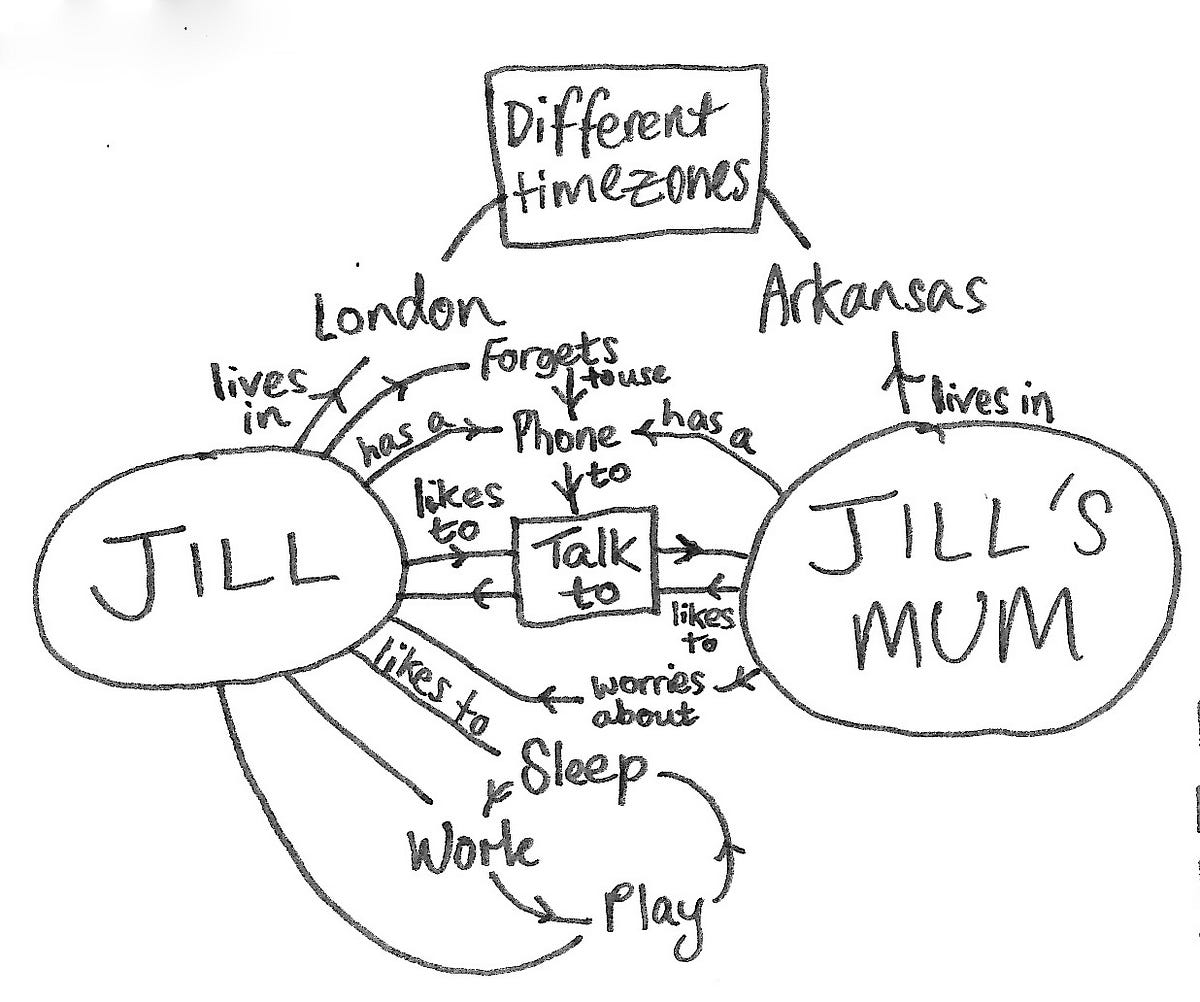 Different
timezones
London
Arkansas
lives
in
Forgets
to use
lives in
has a
Phone
has a
to
likes
to
JILL
Talk
to
JILL'S
MUM
likes
to
worries
about
likes to
Sleep
Work
Play